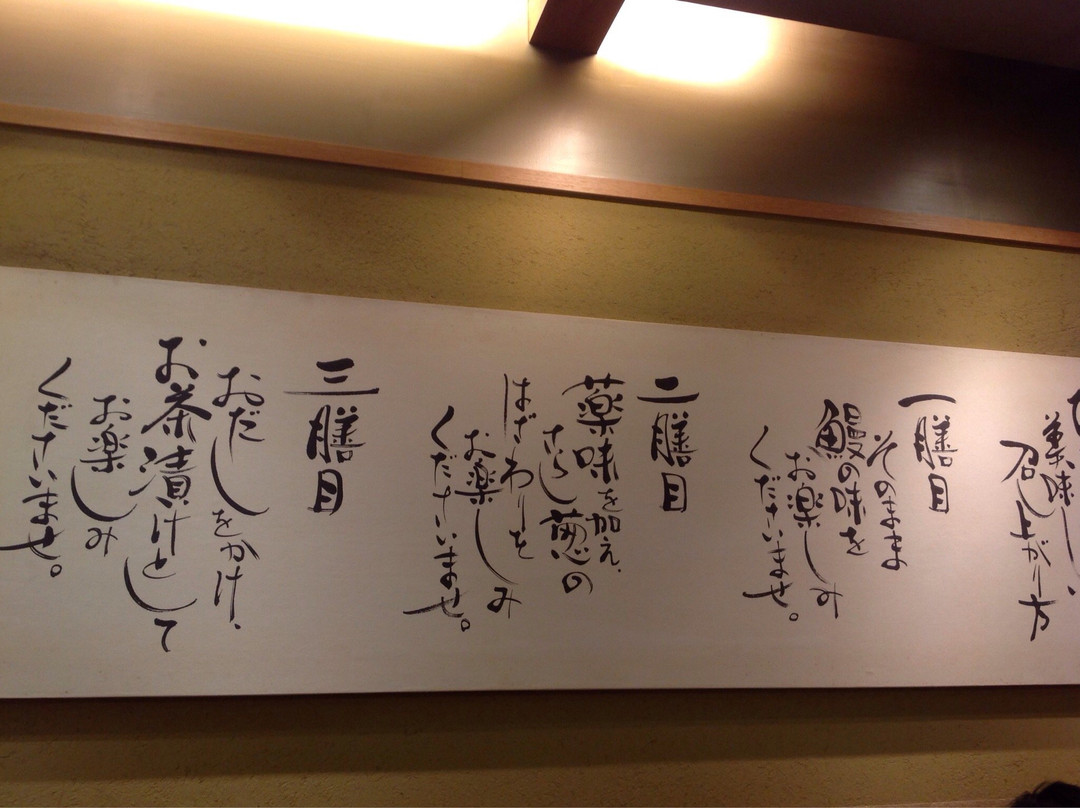 美味しい
召し上がり方
一膳目
そのまま
鰻の味を
お楽しみ
くださいませ。
二膳目
薬味を加え、
さらし葱の
はざわりを
お楽しみ
くださいませ。
三膳目
おだしをかけ、
お茶漬けとして
お楽しみ
くださいませ。